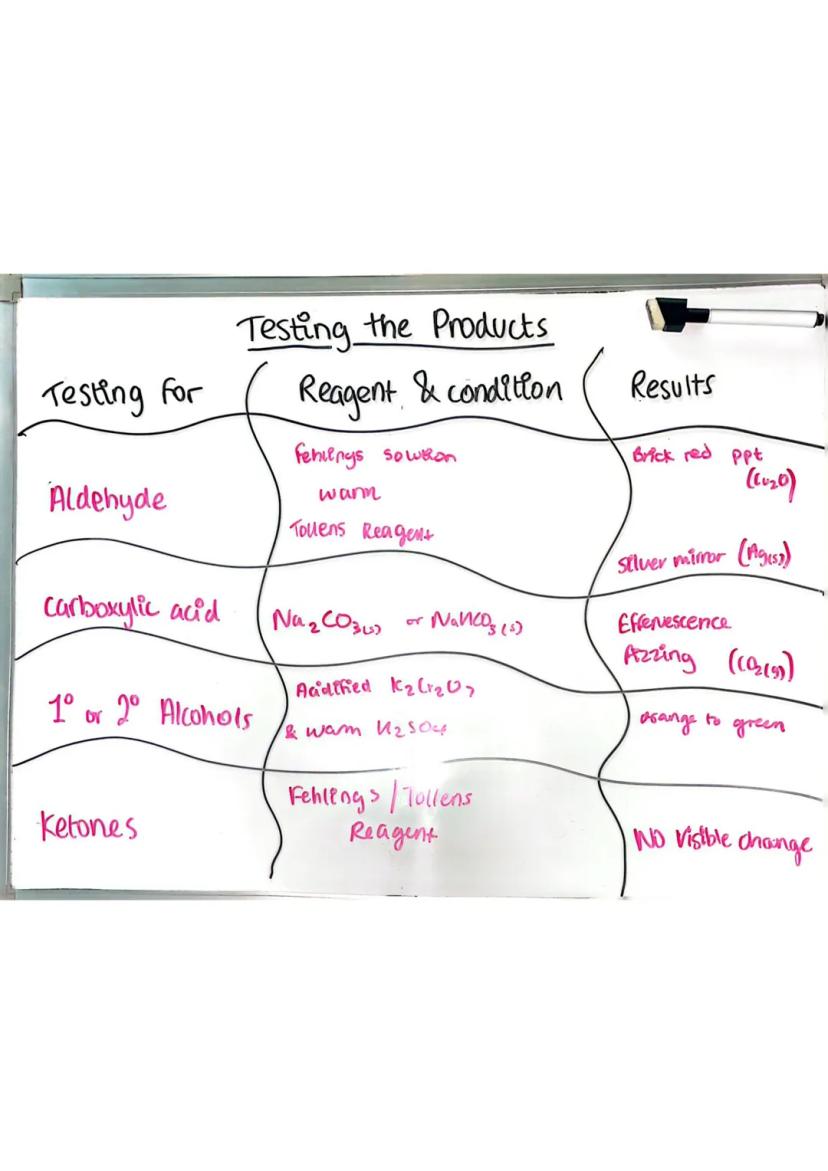 Testing the Products
Testing for
Reagent & condition
Results
Aldehyde
Fehlings solution
warm
Tollens Reagent
Brick red ppt
(Cu₂O)
silver mirror (Ag(s))
Carboxylic acid
Na₂CO₃(s) or NaHCO₃(s)
Effervescence
fizzing (CO₂(g))
1° or 2° Alcohols
Acidified K₂Cr₂O₇
& warm H₂SO₄
orange to green
Ketones
Fehlings / Tollens
Reagent
NO visible change